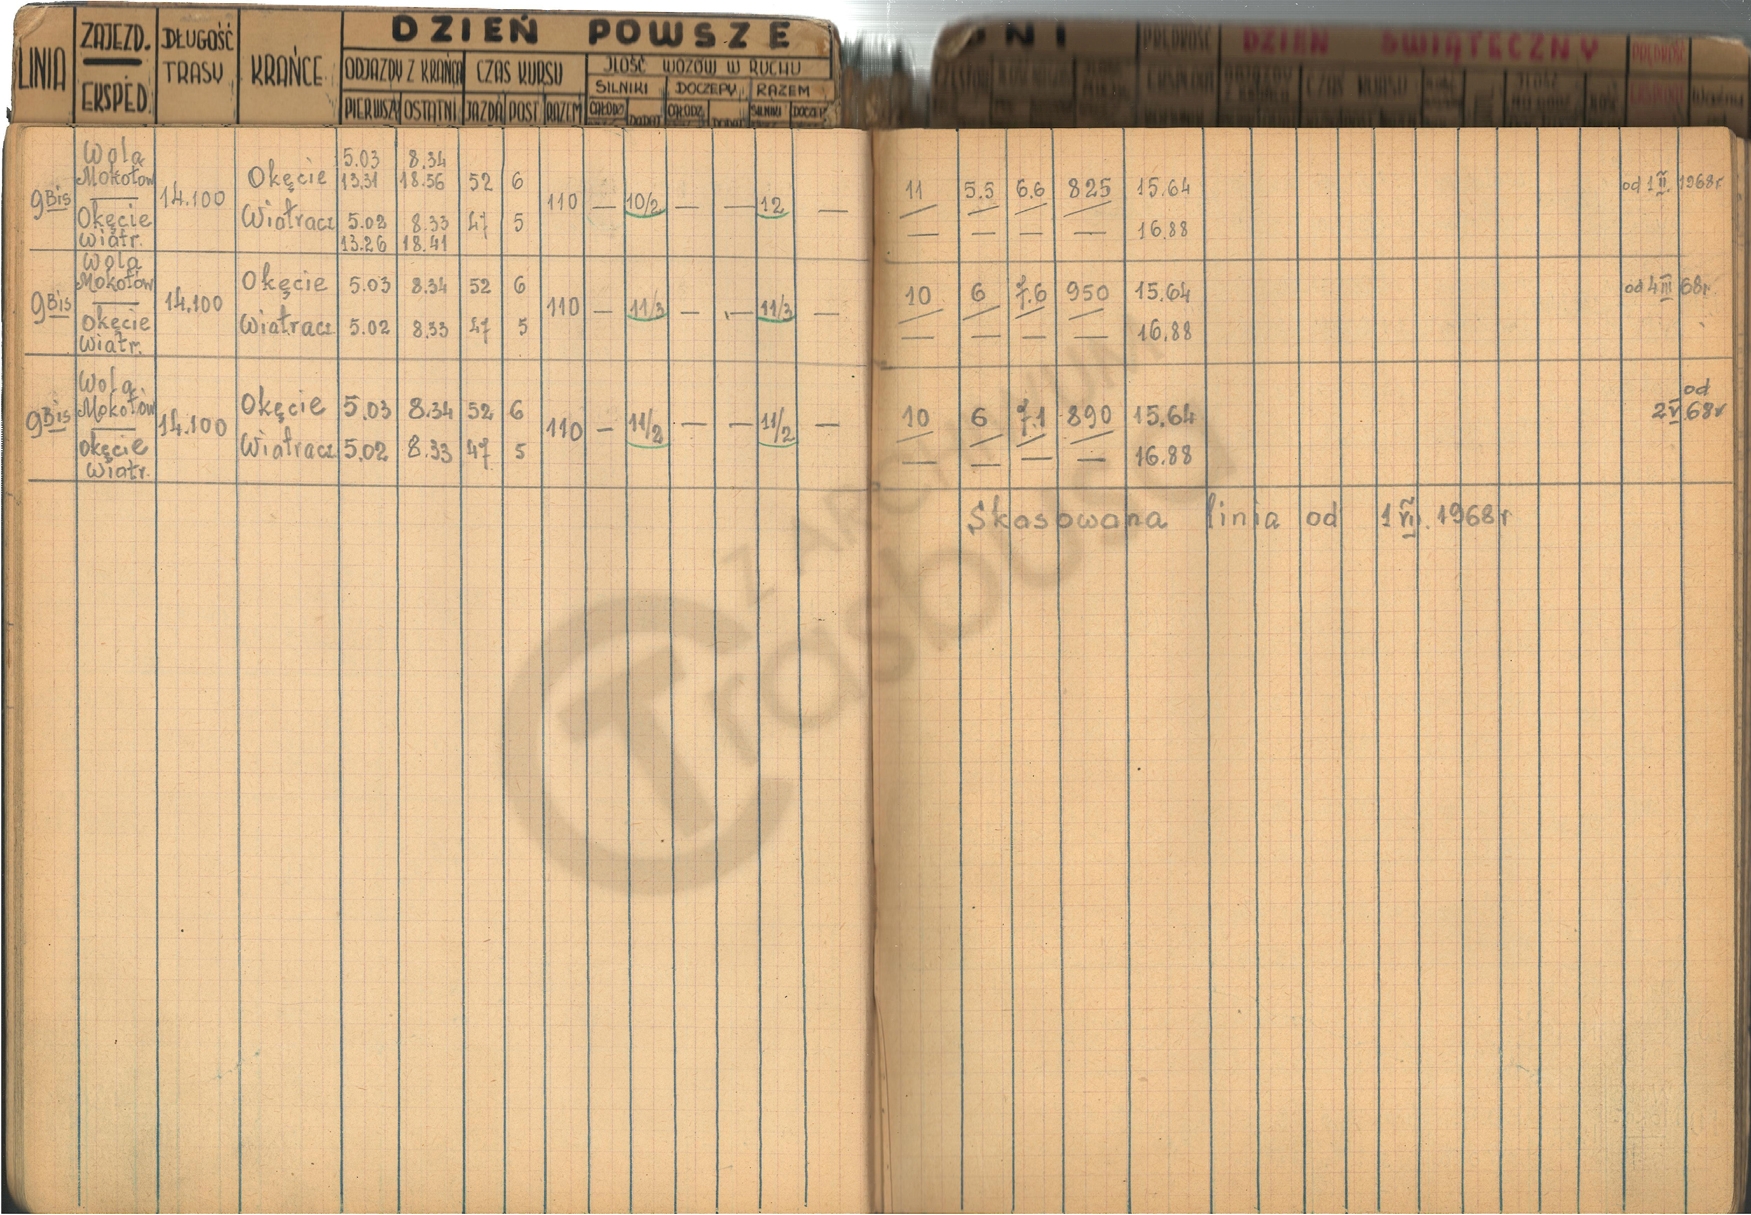 LINIA ZAJEZD. EKSPED. DŁUGOŚĆ TRASY KRAŃCE
DZIEŃ POWSZE DNI
ODJAZDY Z KRAŃCA CZAS KURSU JLOŚĆ WOZÓW W RUCHU
SILNIKI DOCZEPY RAZEM
PIERWSZY OSTATNI JAZDA POST. RAZEM CAŁODZ. DODAT. CAŁODZ. DODAT. SILNIKI DOCZEP.
PRĘDKOŚĆ DZIEŃ ŚWIĄTECZNY PRĘDKOŚĆ
EKSPLOA CZAS KURSU
9Bis
Wola
Mokotów
Okęcie
Wiatr.
14.100
Okęcie 5.03 8.34
13.31 18.56 52 6
Wiatracz 5.02 8.33 47 5
13.26 18.41
110 — 10/2 — — 12 —
11 5.5 6.6 825 15,64
— — — — 16.88
od 1 II 1968r
9Bis
Wola
Mokotów
Okęcie
Wiatr.
14.100
Okęcie 5.03 8.34 52 6
Wiatracz 5.02 8.33 47 5
110 — 11/3 — — 11/3 —
10 6 7.6 950 15,64
— — — — 16.88
od 4 III 68r
9Bis
Wola
Mokotów
Okęcie
Wiatr.
14.100
Okęcie 5.03 8.34 52 6
Wiatracz 5.02 8.33 47 5
110 — 11/2 — — 11/2 —
10 6 7.1 890 15,64
— — — — 16.88
od
2 V 68r
Skasowana linia od 1 VII. 1968r
Z ARCHIWUM
Trasbusa